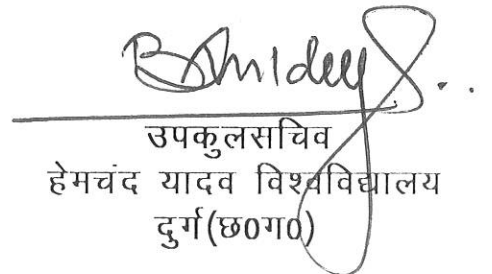 उपकुलसचिव
हेमचंद यादव विश्वविद्यालय
दुर्ग(छ0ग0)